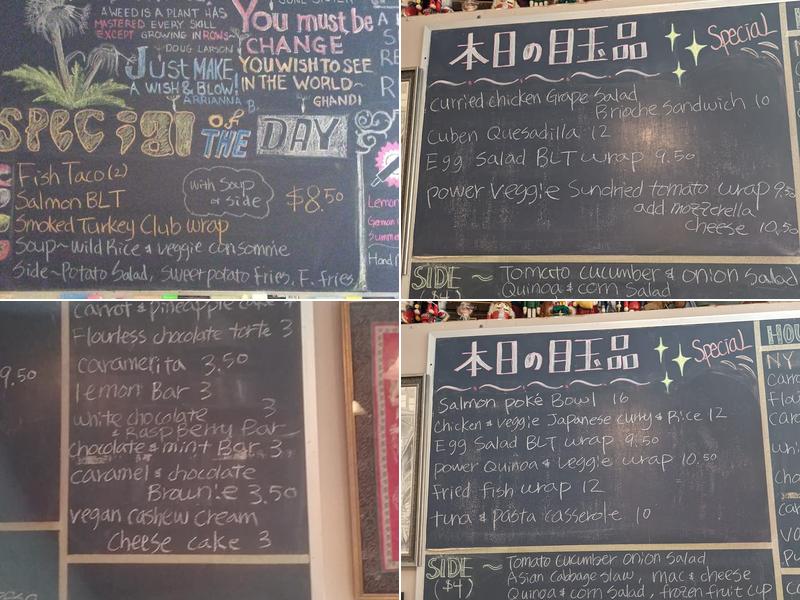 A WEED IS A PLANT HAS
MASTERED EVERY SKILL
EXCEPT GROWING IN ROWS.
~DOUG LARSON
Just MAKE
A WISH & BLOW!
ARRIANNA B.
You must be
CHANGE
YOU WISH TO SEE
IN THE WORLD~
GHANDI
Special OF THE DAY
Fish Taco (2)
Salmon BLT
Smoked Turkey Club wrap
with Soup
or side
$8.50
Soup~Wild Rice & veggie consomme
Side~Potato Salad, Sweet potato fries, F. fries
Lemon
German
Summe
Hand
本日の目玉品 Special
curried chicken Grape Salad
Brioche Sandwich 10
Cuben Quesadilla 12
Egg Salad BLT wrap 9.50
power veggie Sundried tomato wrap 9.50
add mozzerella
cheese 10.50
SIDE ~ Tomato cucumber & onion Salad
($4) Quinoa & corn Salad
9.50
carrot & pineapple cake 4
Flourless chocolate torte 3
caramerita 3.50
lemon Bar 3
white chocolate 3
& Raspberry Bar
chocolate & mint Bar 3
caramel & chocolate
Brownie 3.50
vegan cashew cream
cheese cake 3
本日の目玉品 Special
Salmon poké Bowl 16
chicken & veggie Japanese curry & Rice 12
Egg Salad BLT wrap 9.50
power Quinoa & veggie wrap 10.50
fried fish wrap 12
tuna & pasta casserole 10
SIDE ~ Tomato cucumber onion Salad
($4) Asian cabbage slaw, mac & cheese
Quinoa & corn Salad, frozen fruit cup
HOU
NY